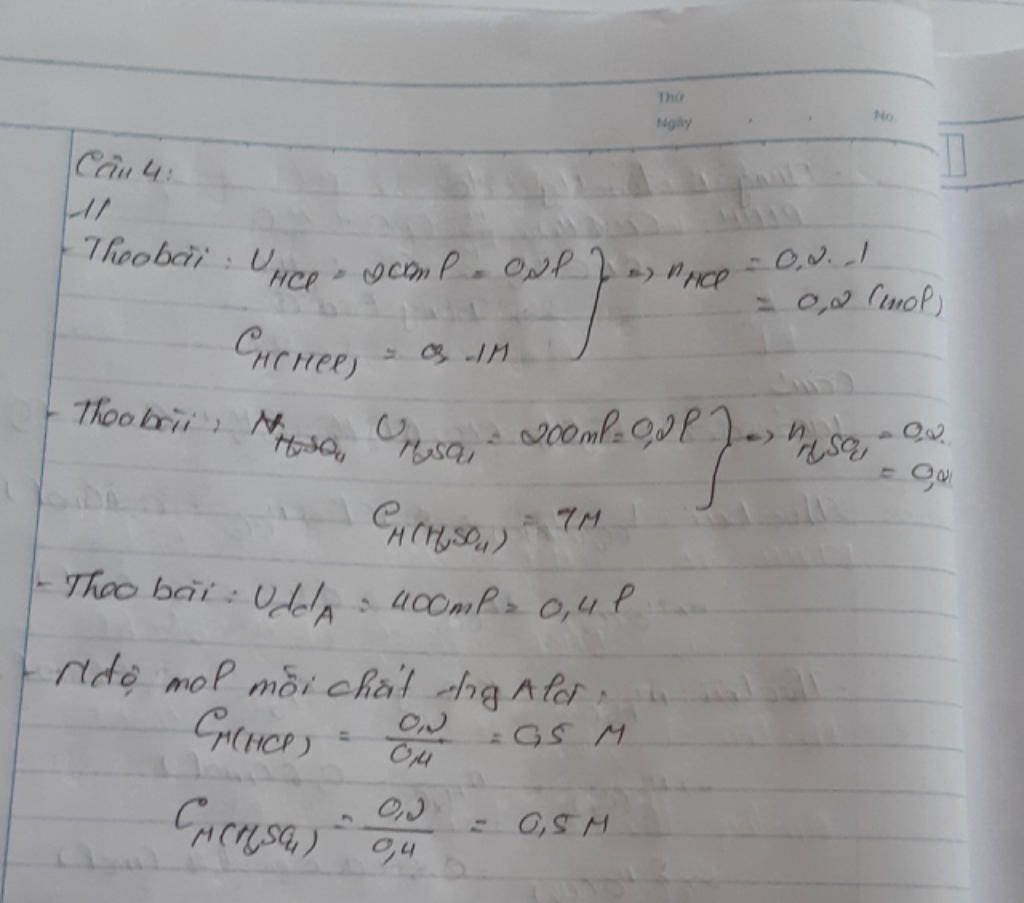 Thứ
Ngày
No.
Câu 4:
1/
- Theo bài : V HCl = 200ml = 0,2l } => n HCl = 0,2. 1
= 0,2 (mol)
C M(HCl) = 1M
- Theo bài : V H2SO4 = 200ml = 0,2l } => n H2SO4 = 0,2.
= 0,2
C M(H2SO4) = 1M
- Theo bài : Vdd A = 400ml = 0,4l
- Nđộ mol mỗi chất trg A là :
C M(HCl) = 0,2/0,4 = 0,5 M
C M(H2SO4) = 0,2/0,4 = 0,5 M